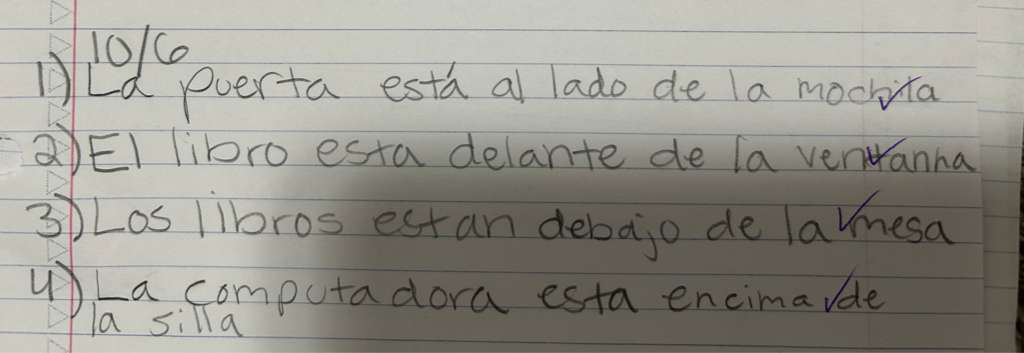 10/6
1) La puerta está al lado de la mochila
2) El libro esta delante de la ventanna
3) Los libros estan debajo de la mesa
4) La computadora esta encima de
la silla